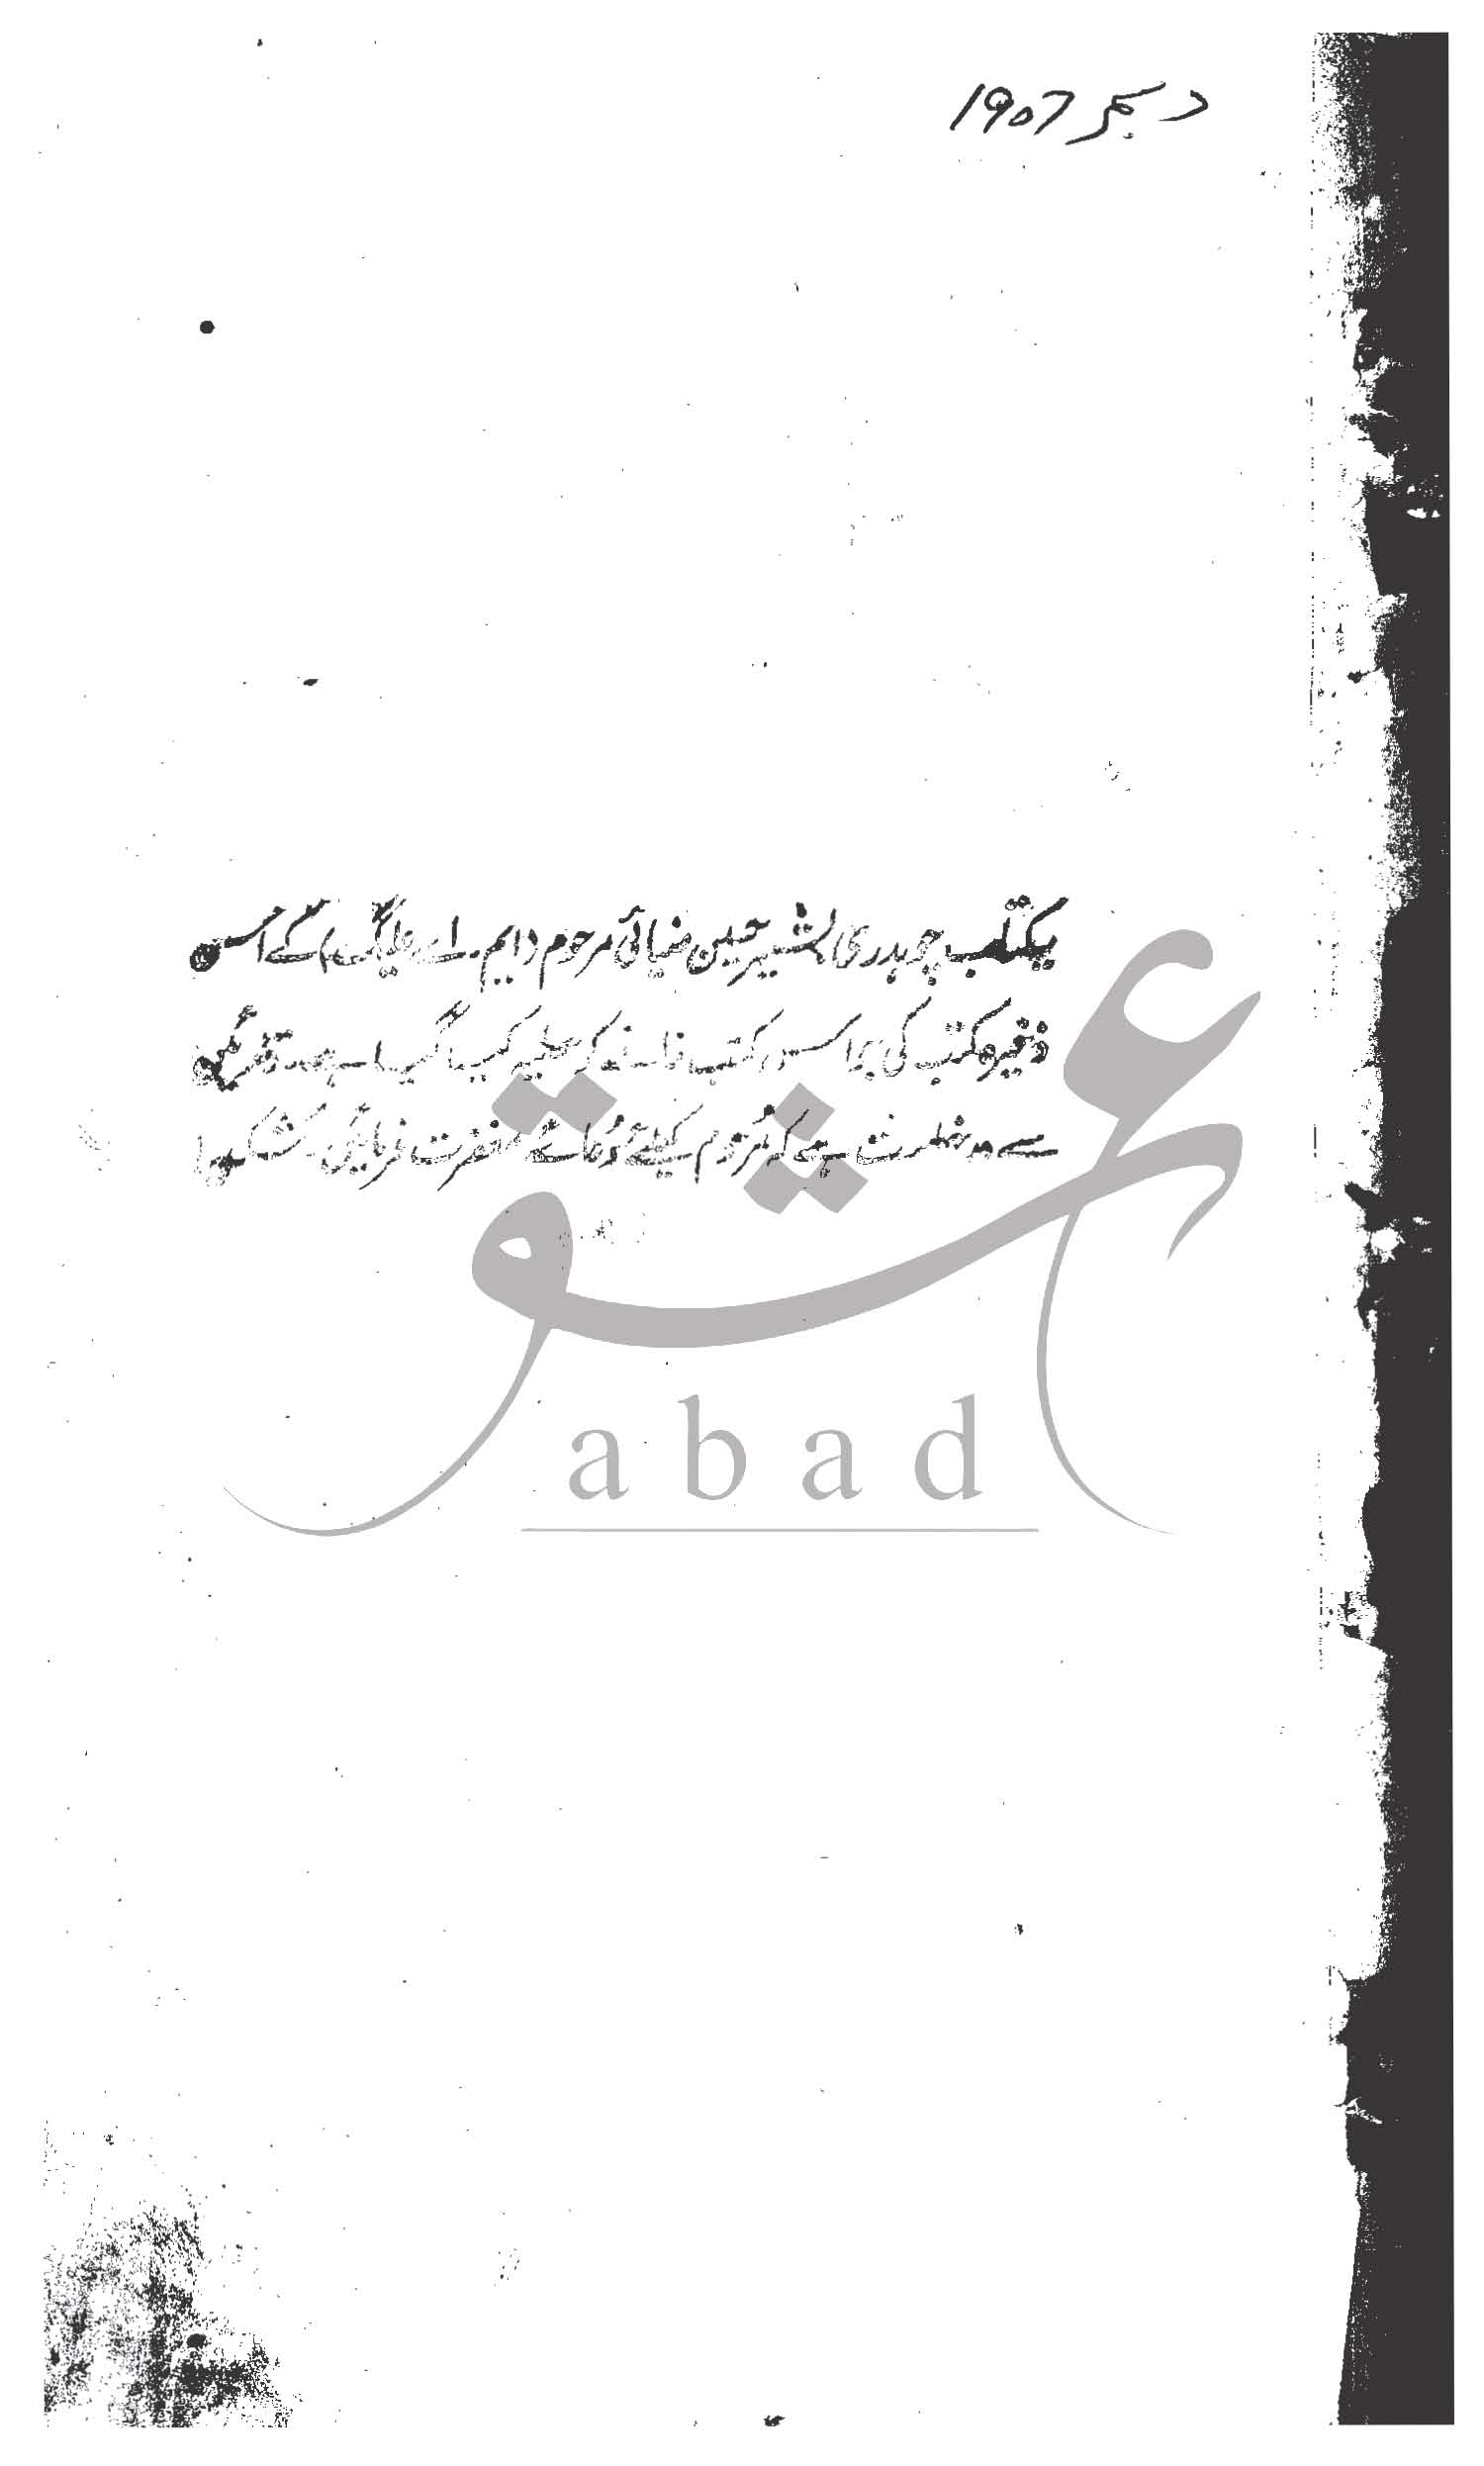 دسمبر 1907
یہ کتاب چوہدری بشیر حسین ضیائی مرحوم (ایم۔ اے علیگ) کے اس
ذخیرہ کتب کی ہے جو اس کتب خانہ کو عطیہ کیا گیا ہے۔
سے درخواست ہے کہ مرحوم کیلئے دعائے مغفرت فرمائیں۔ شکریہ!
عشق
abad